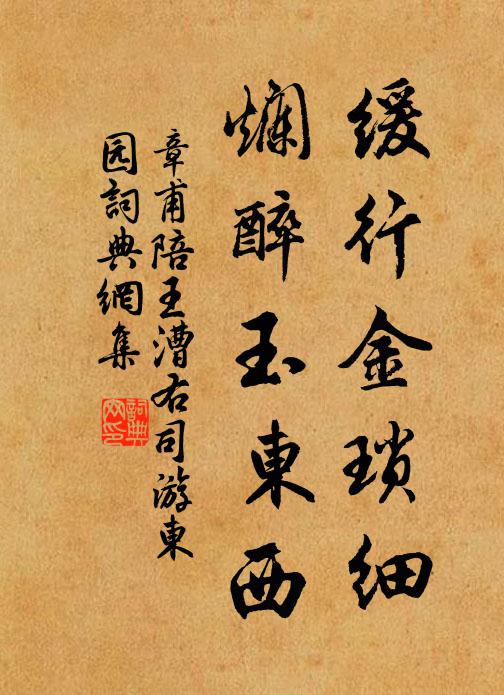 缓行金琐细
烂醉玉東西
章甫陪王漕右司游東
园詞典網集
詞典
网印